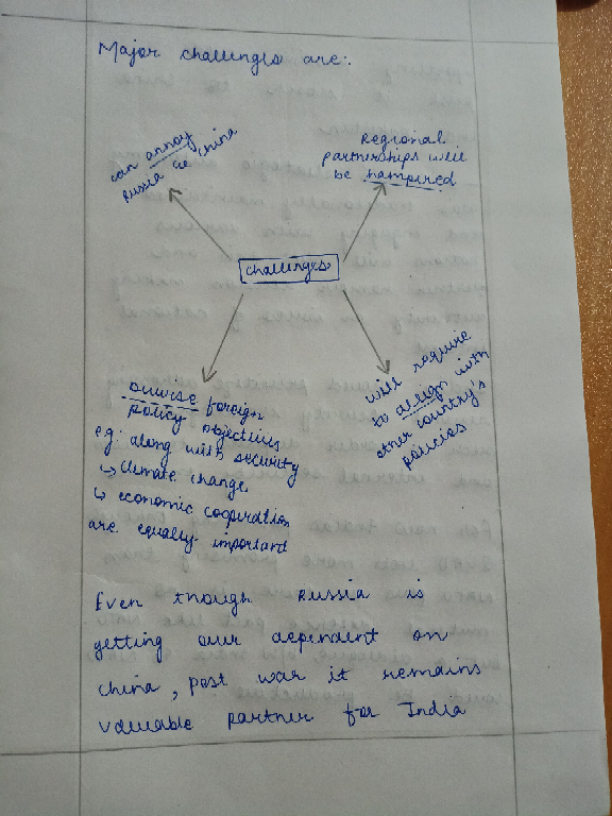 Major challenges are:.
can annoy
Russia or China
Regional
partnerships will
be hampired
challenges
Diverse foreign
policy objectives
eg: along with security
↳ Climate change
↳ economic cooperation
are equally important
will require
to allign with
other country's
policies
Even though Russia is
getting over dependent on
China, post war it remains
valuable partner for India